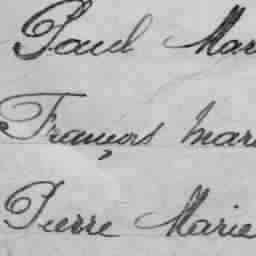 Paul Mar
François Mari
Pierre Marie